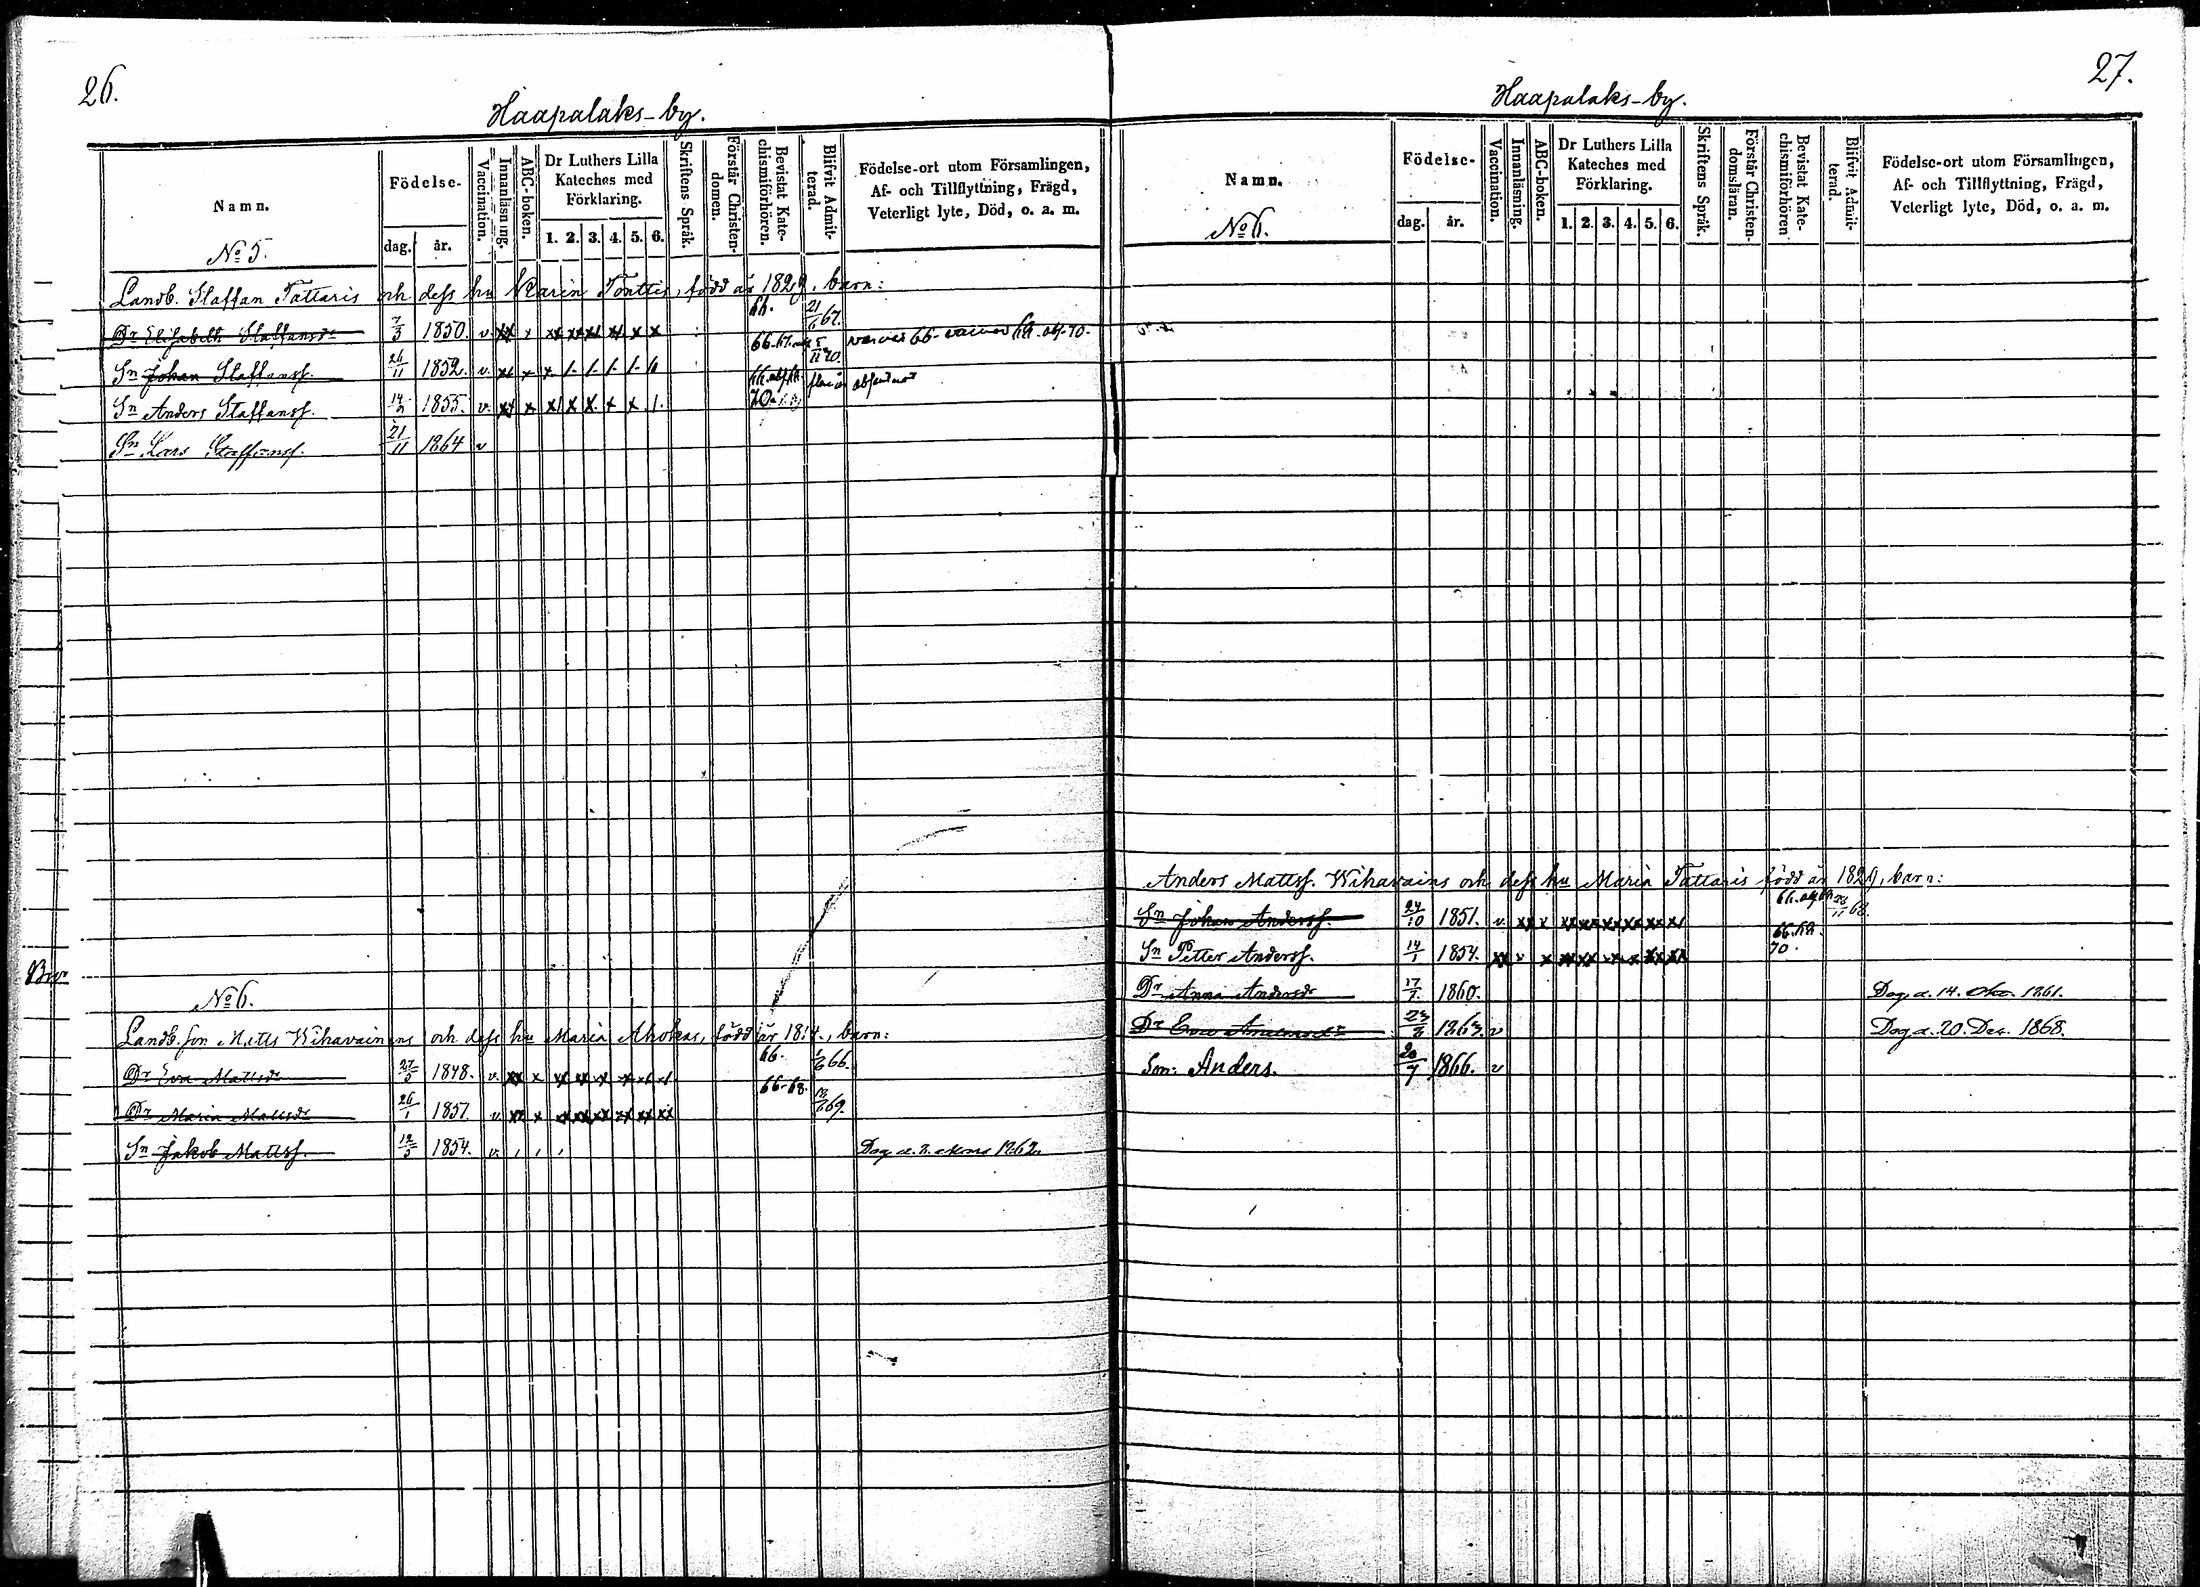 26.
Haapalaks-by.
Namn.
Födelse-
dag.
år.
Vaccination.
Innanläsning.
ABC-boken.
Dr Luthers Lilla Kateches med Förklaring.
1. 2. 3. 4. 5. 6.
Skriftens Språk.
Förstår Christendomen.
Bevistat Katechismiförhören.
Blifvit Admitterad.
Födelse-ort utom Församlingen,
Af- och Tillflyttning, Frägd,
Veterligt lyte, Död, o. a. m.
No 5.
Landb. Staffan Tattaris och dess hu Karin Tönttis, född år 1829, barn:
Dr Elisabeth Staffansdr 7/3 1850. v. 21/6 67.
Sn Johan Staffanss. 26/11 1852. v. 66. 67.
Sn Anders Staffanss. 14/9 1855. v. 70.
Sn Lars Staffanss. 21/11 1864 v
No 6.
Landb. son Matts Wihavainens och dess hu Maria Ahokas, född år 1814, barn:
Dr Eva Mattsdr 27/5 1848. v. 66. 1/6 66.
Dr Maria Mattsdr 26/1 1851. v. 66-68. 69.
Sn Jakob Mattss. 12/5 1854. v. Dog d. 2. Mars 1862.
27.
Haapalaks-by.
Namn.
Födelse-
dag.
år.
Vaccination.
Innanläsning.
ABC-boken.
Dr Luthers Lilla Kateches med Förklaring.
1. 2. 3. 4. 5. 6.
Skriftens Språk.
Förstår Christendomsläran.
Bevistat Katechismiförhören
Blifvit Admitterad.
Födelse-ort utom Församlingen,
Af- och Tillflyttning, Frägd,
Veterligt lyte, Död, o. a. m.
No 6.
Anders Mattss. Wihavains och dess hu Maria Tattaris född år 1829, barn:
Sn Johan Anderss. 24/10 1851. v. 68.
Sn Petter Anderss. 14/1 1854. 70.
Dr Anna Andersdr 17/7 1860. Dog d. 14. Okt. 1861.
Dr Eva Andersdr 1863. v Dog d. 20. Dec. 1868.
Son: Anders. 20/7 1866. v